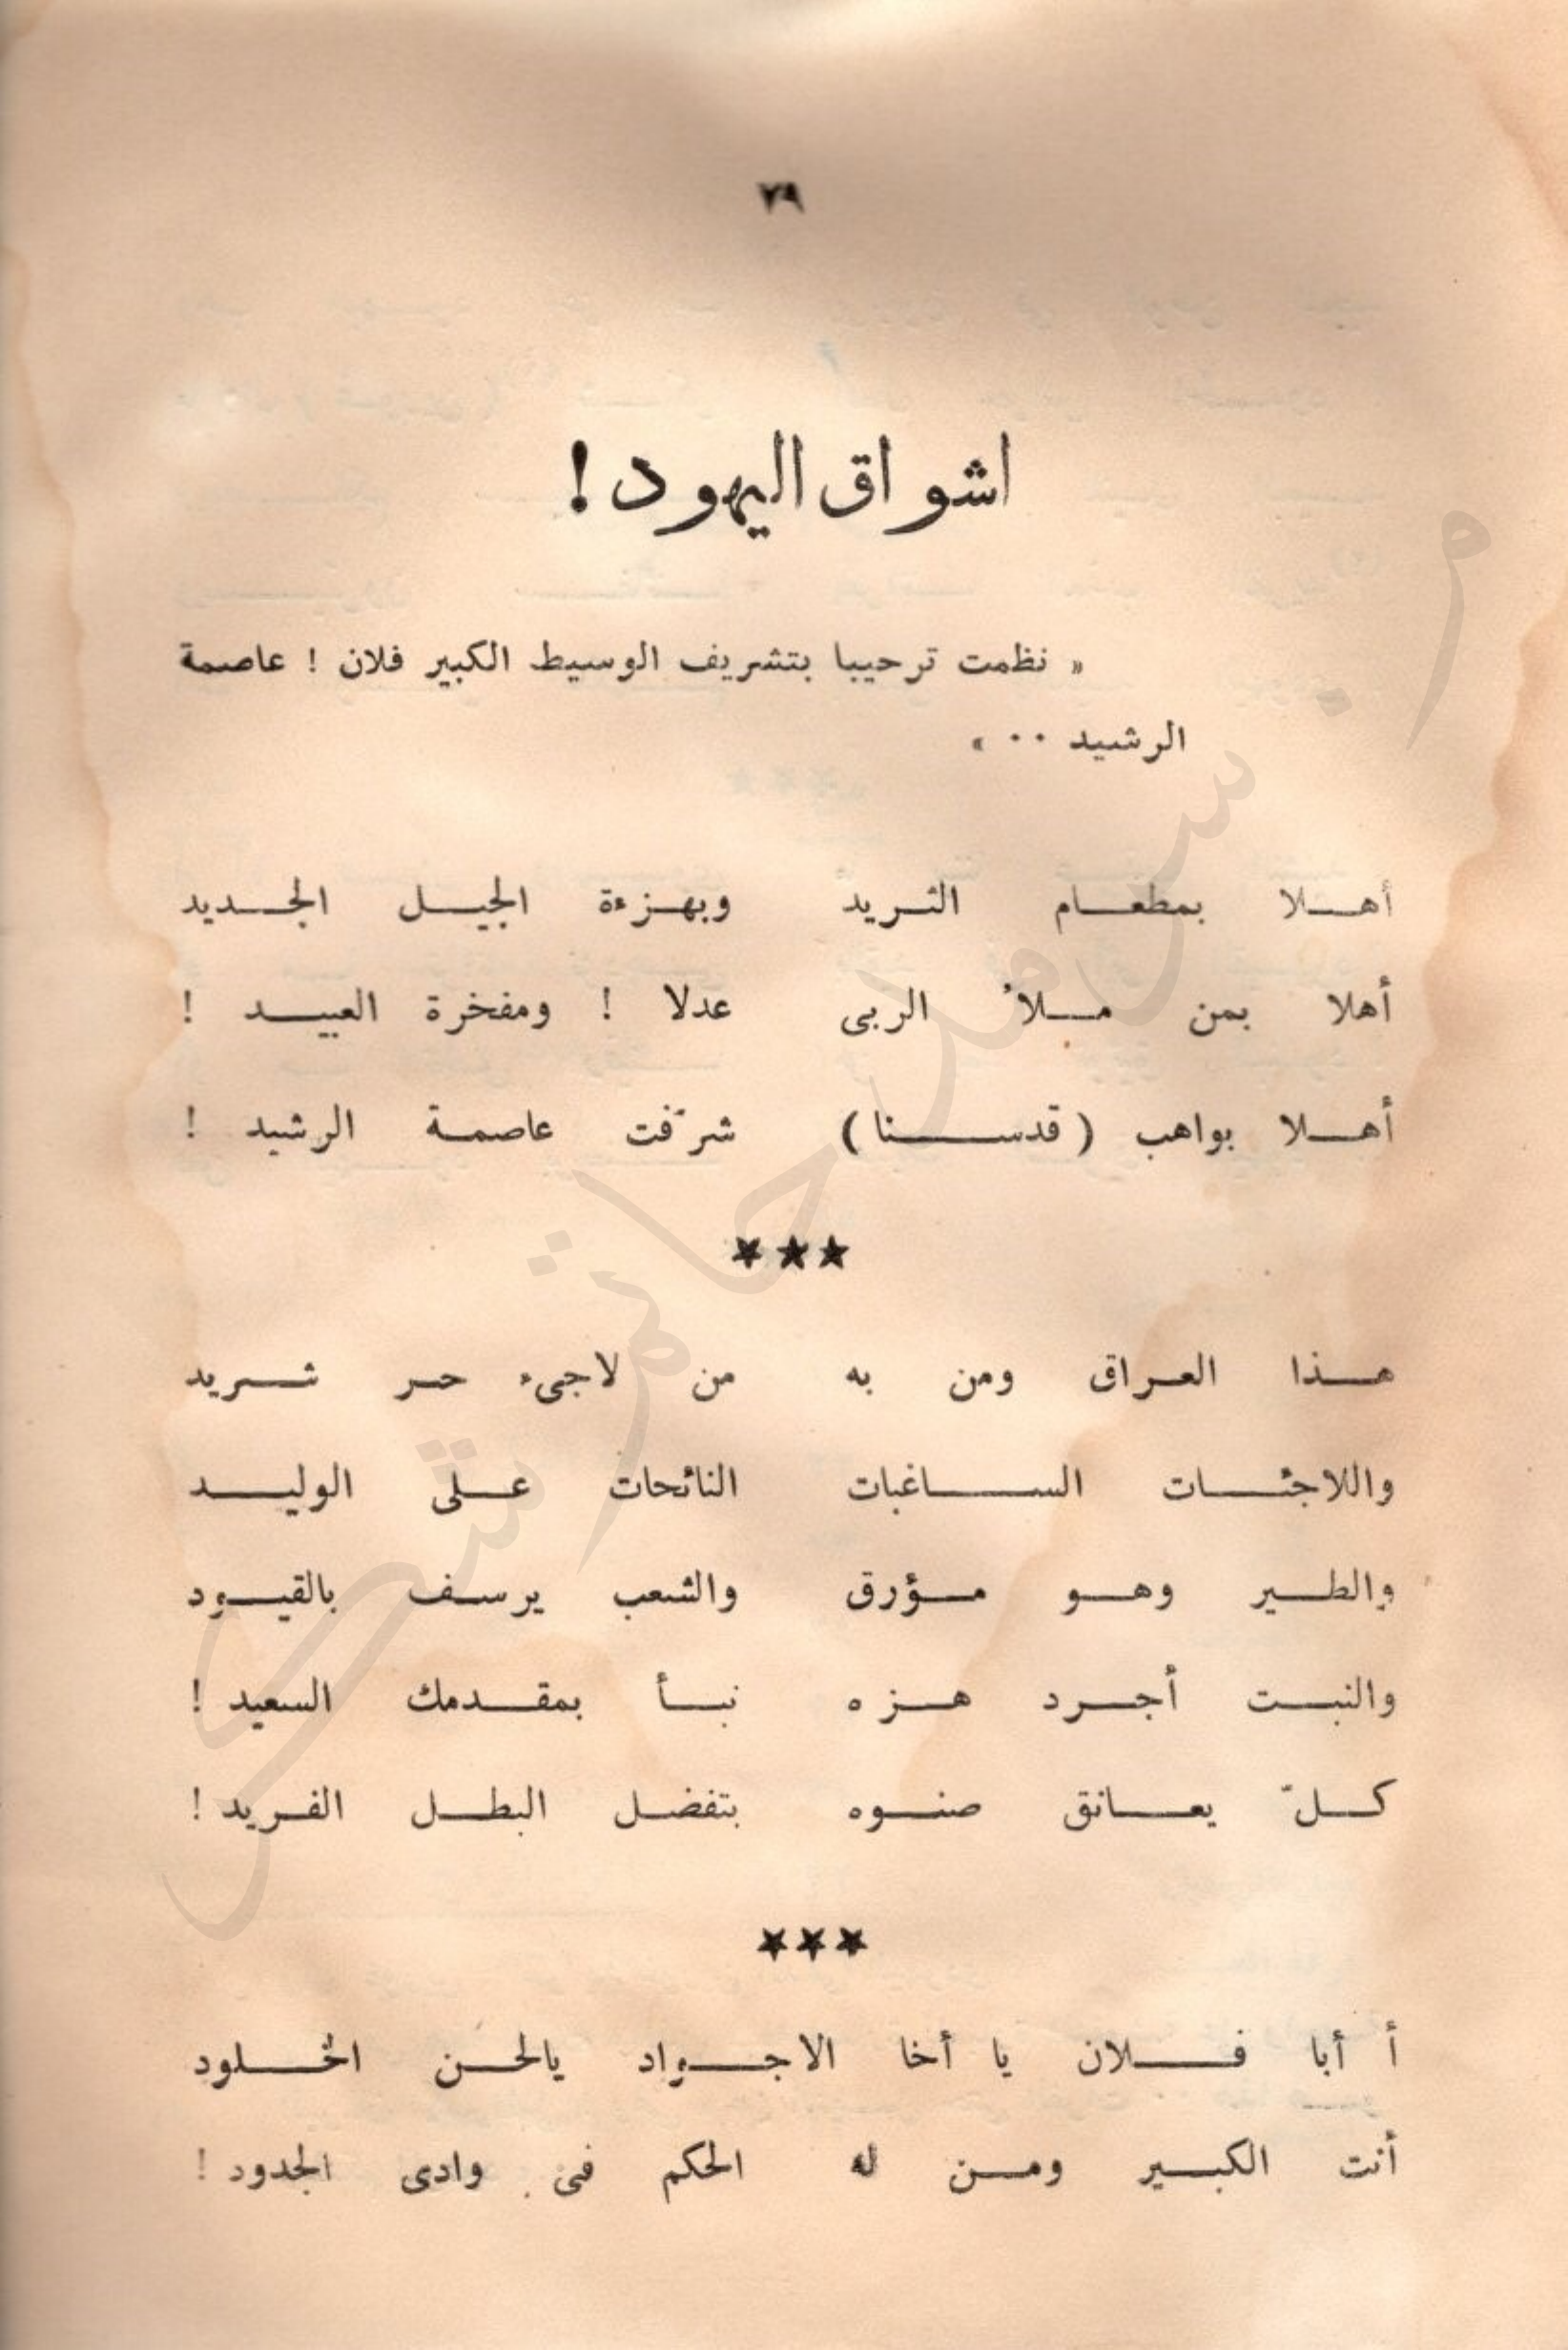 ٧٩
اشواق اليهود !
« نظمت ترحيبا بتشريف الوسيط الكبير فلان ! عاصمة
الرشيد ٠٠ »
أهـلا بمطعـام الثـريد وبهـزءة الجيـل الجـديد
أهلا بمن مـلأ الربى عدلا ! ومفخرة العبيـد !
أهـلا بواهب ( قدسـنا ) شرّفت عاصمـة الرشيد !
★★★
هـذا العـراق ومن به من لاجىء حـر شـريد
واللاجئـات السـاغبات النائحات عـلى الوليـد
والطـير وهـو مـؤرق والشعب يرسـف بالقيـود
والنبـت أجـرد هـزه نبـأ بمقـدمك السعيد !
كـلّ يعـانق صنـوه بتفضـل البطـل الفـريد !
★★★
أ أبا فـلان يا أخا الاجـواد يالحـن الخـلود
أنت الكبـير ومـن له الحكم فى وادى الجدود !
من سرمد حاتم شكر